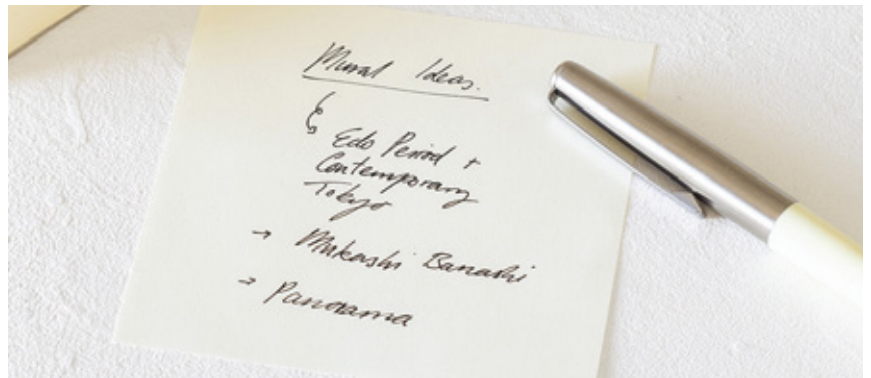 Mural Ideas.
Edo Period +
Contemporary
Tokyo
→ Mukashi Banashi
→ Panorama